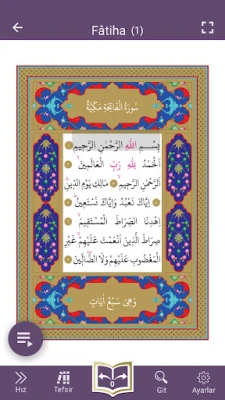 Fâtiha (1)
سُورَةُ الْفَاتِحَةِ مَكِّيَّةٌ
بِسْمِ اللّٰهِ الرَّحْمٰنِ الرَّحِيمِ
اَلْحَمْدُ لِلّٰهِ رَبِّ الْعَالَمِينَ
اَلرَّحْمٰنِ الرَّحِيمِ مَالِكِ يَوْمِ الدِّينِ
اِيَّاكَ نَعْبُدُ وَاِيَّاكَ نَسْتَعِينُ
اِهْدِنَا الصِّرَاطَ الْمُسْتَقِيمَ
صِرَاطَ الَّذِينَ اَنْعَمْتَ عَلَيْهِمْ غَيْرِ
الْمَغْضُوبِ عَلَيْهِمْ وَلَا الضَّالِّينَ
وَهِيَ سَبْعُ اٰيَاتٍ
Hız Tefsir 0 Git Ayarlar